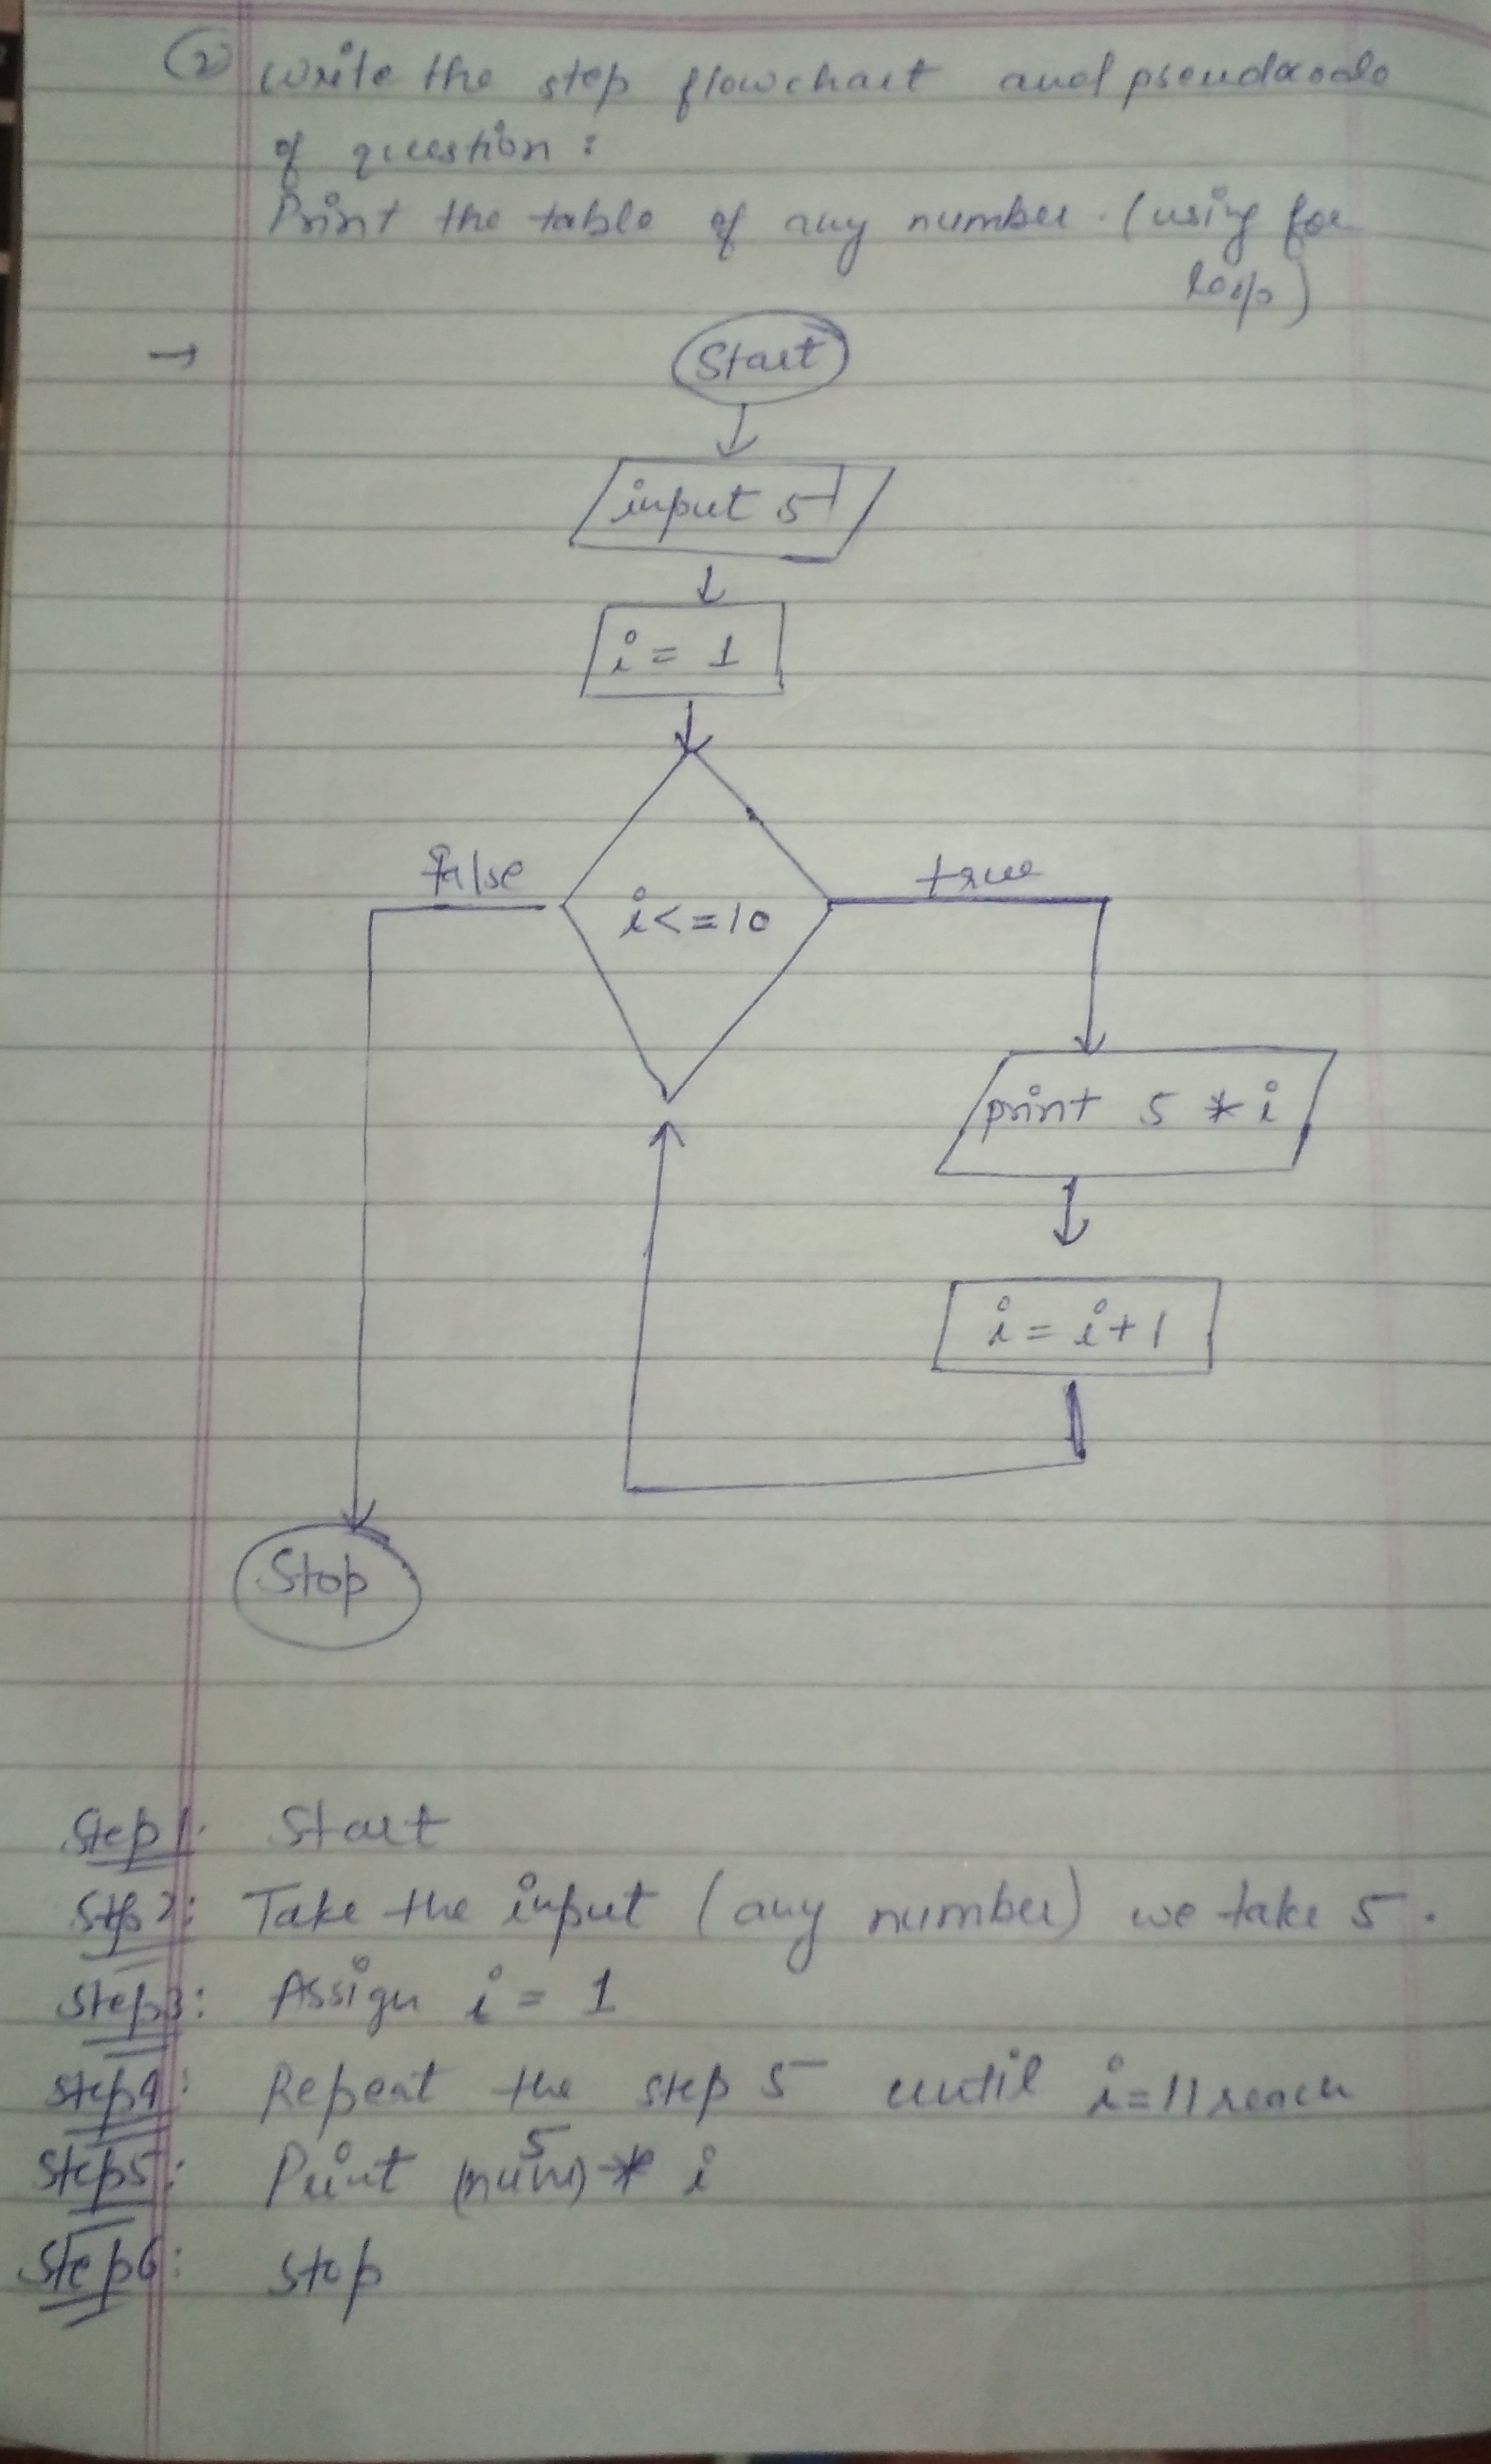 (2) Write the step flowchart and pseudocode
of question :
Print the table of any number. (using for
loop)
→
Start
input 5
i = 1
false
true
i<=10
print 5 * i
i = i+1
Stop
Step1: Start
Stp2: Take the input (any number) we take 5.
Step3: Assign i = 1
Step4: Repeat the step 5 until i=11 reach
5
Step5: Print (num) * i
Step6: Stop